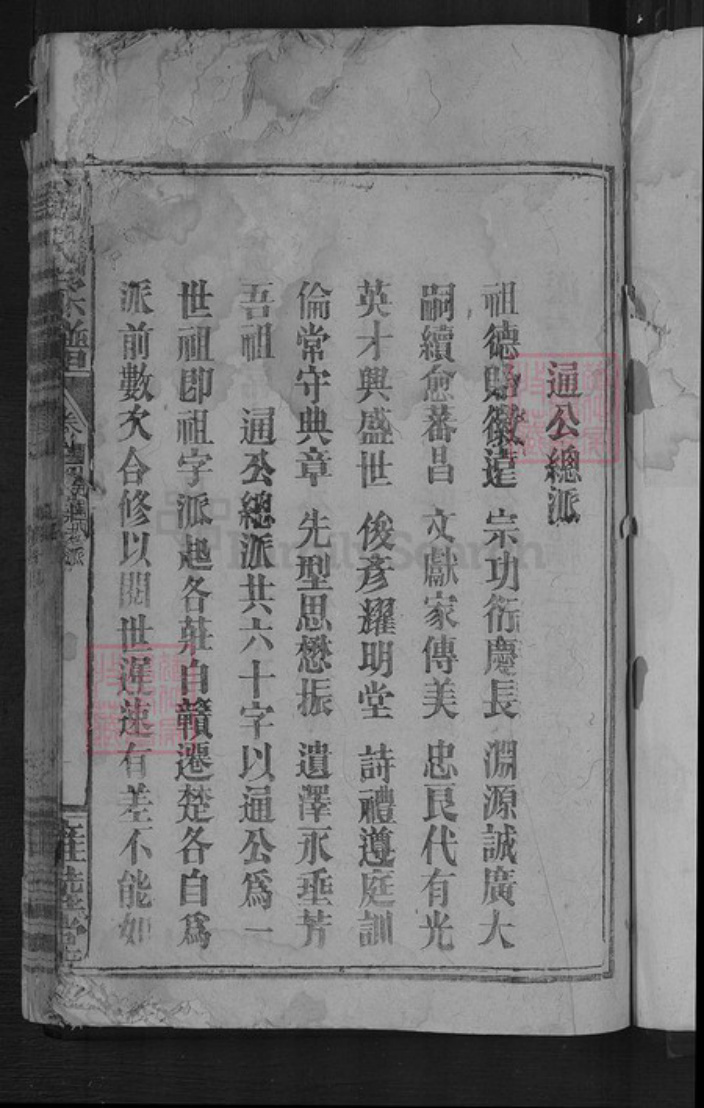 逼公總派
祖德貽徽遠 宗功衍慶長 淵源誠廣大
嗣續愈蕃昌 文獻家傳美 忠良代有光
英才興盛世 俊彥耀明堂 詩禮遵庭訓
倫常守典章 先型思懋振 遺澤永垂芳
吾祖 逼公總派共六十字以逼公為一
世祖即祖字派起各莊自贛遷楚各自為
派前數次合修以閱世遲速有差不能如
宗譜
三桂堂
FamilySearch